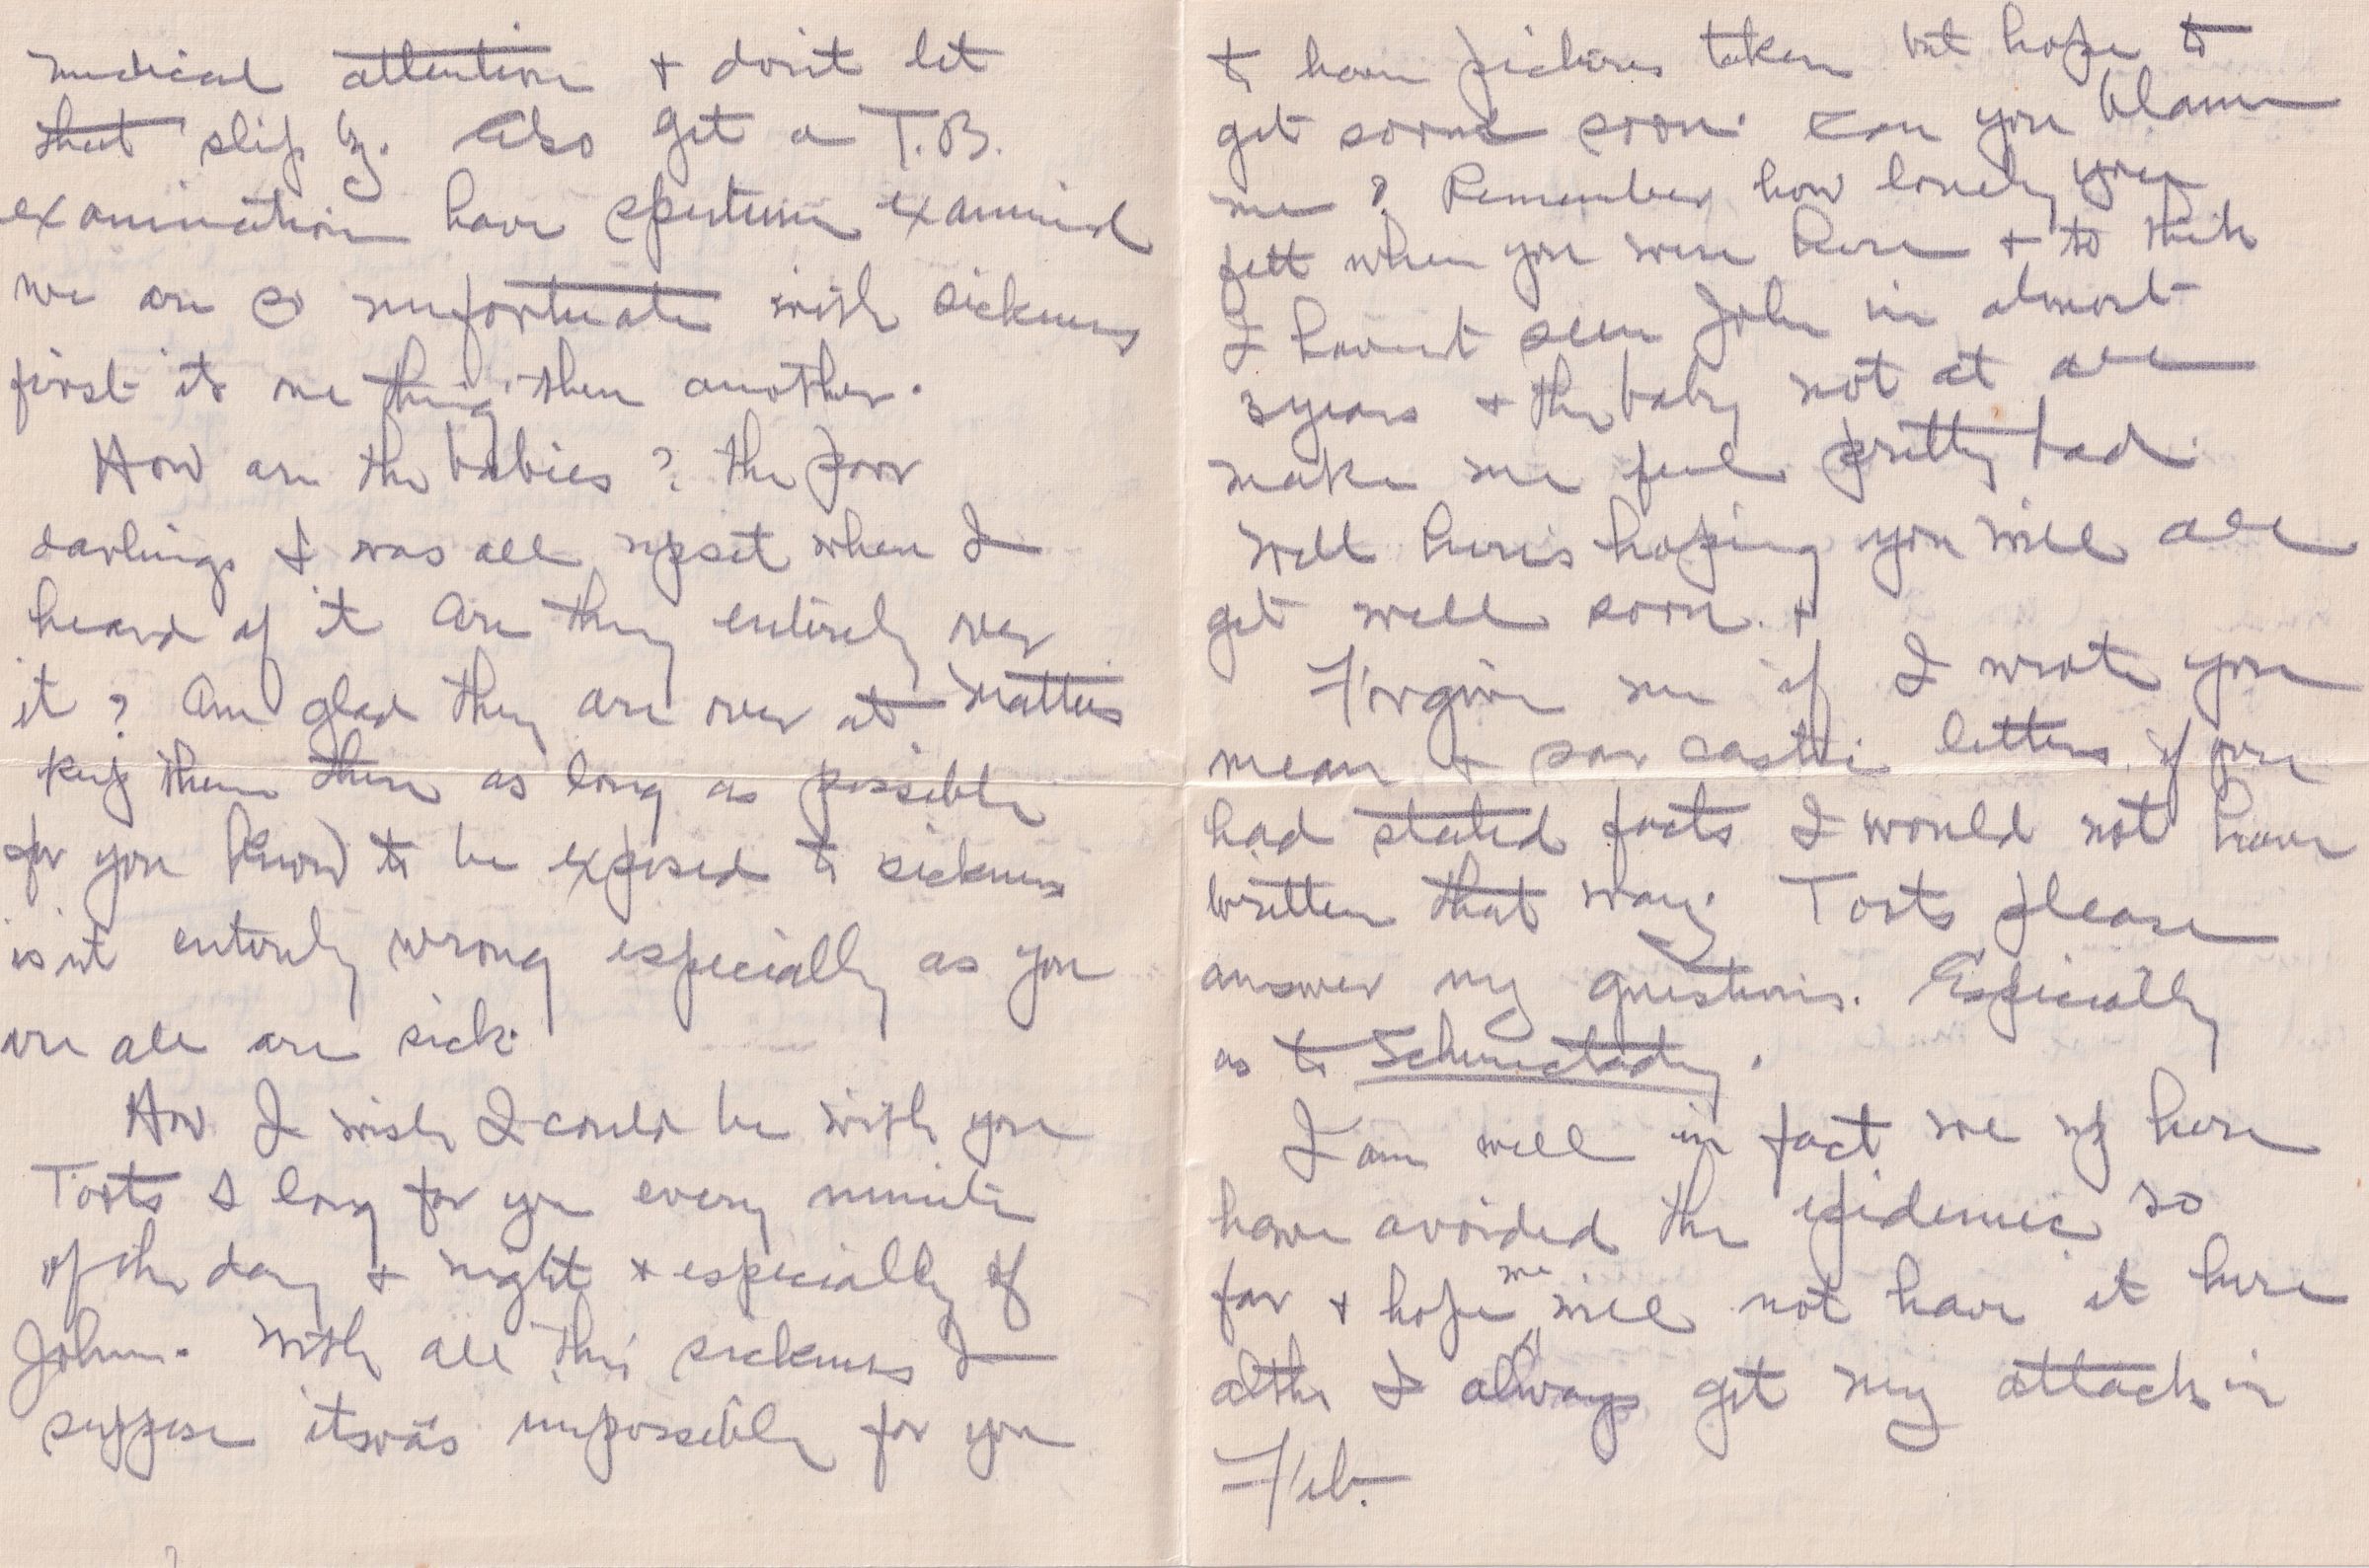 medical attention + don't let
that slip by. Also get a T.B.
examination have sputum examined
we are so unfortunate with sickness
first its one thing then another.
How are the babies? the poor
darlings I was all upset when I
heard of it Are they entirely over
it? Am glad they are over at Matties
keep them there as long as possible
for you know to be exposed to sickness
is'nt entirely wrong especially as you
are all are sick.
How I wish I could be with you
Toots I long for you every minute
of the day + night + especially of
John. With all this sickness I
suppose itswas impossible for you
to have pictures taken but hope to
get some soon. Can you blame
me? Remember how lonely you
felt when you were here + to think
I havent seen John in almost
3 years + the baby not at all
make me feel pretty bad.
Well here's hoping you will all
get well soon. +
Forgive me if I wrote you
mean + sarcastic letters if you
had stated facts I would not have
written that way. Toots please
answer my questions. Especially
as to Schenectady.
I am well in fact we up here
have avoided the epidemic so
far + hope we will not have it here
altho I always get my attack in
Feb.